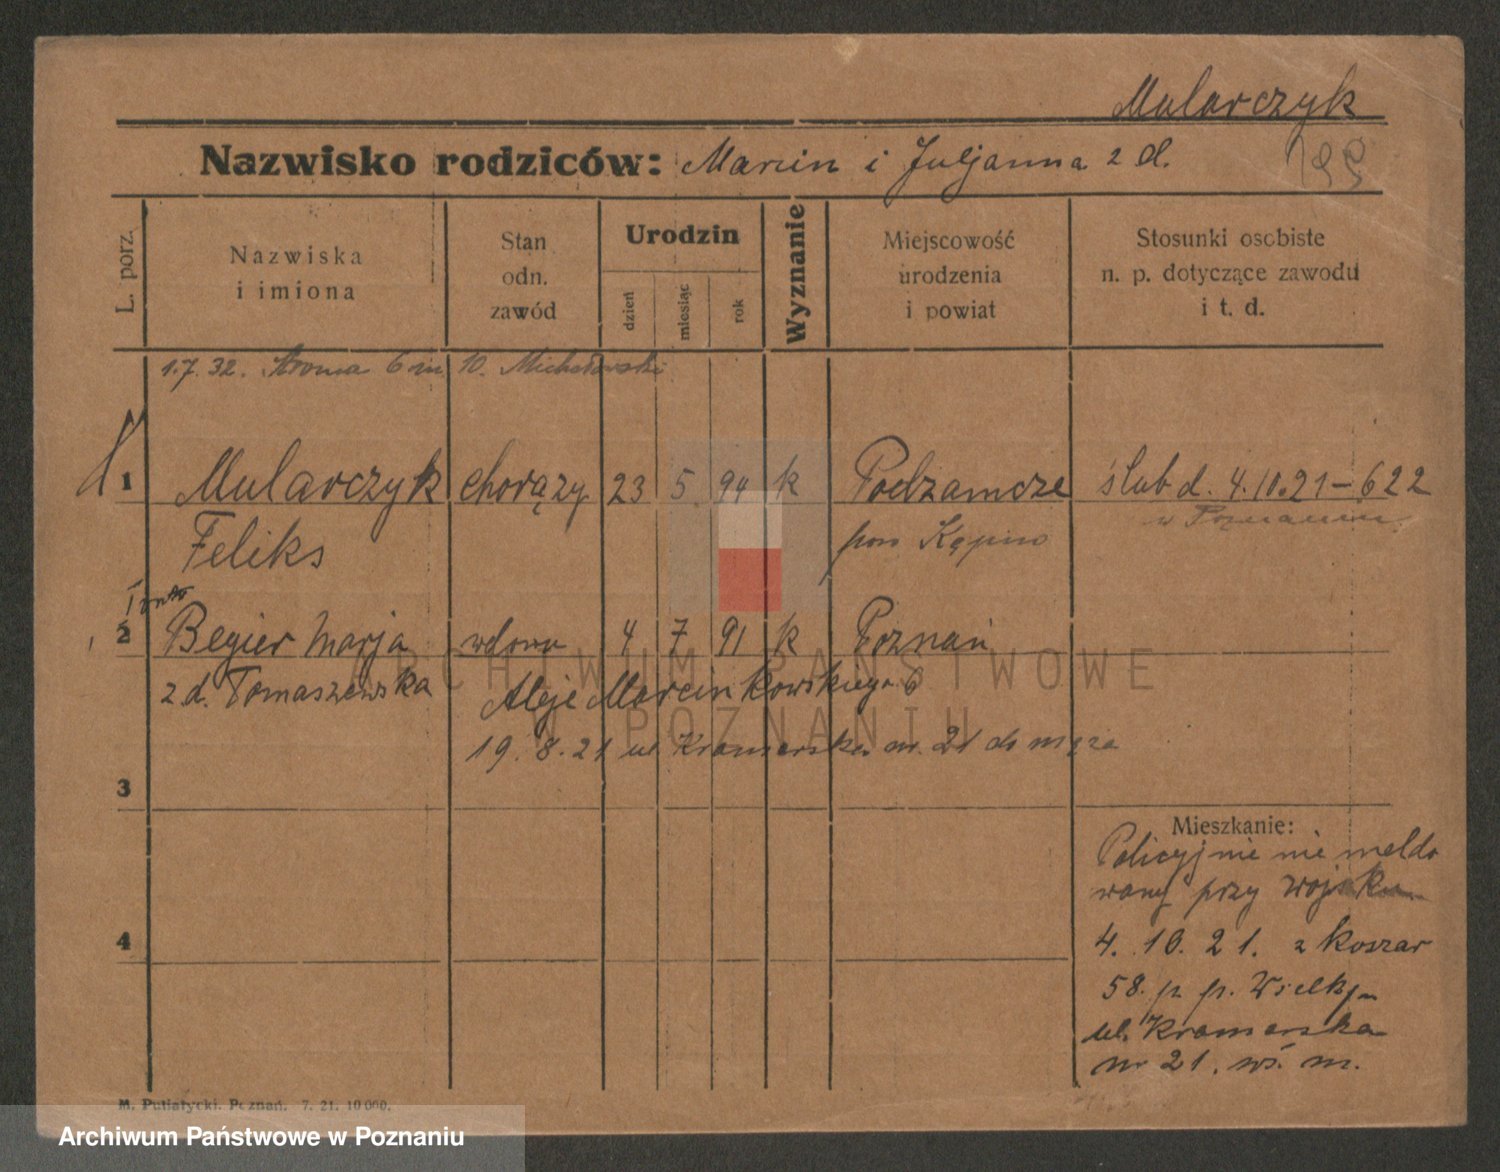 Mularczyk
Nazwisko rodziców: Marcin i Juljanna z d.
L. porz.
Nazwiska
i imiona
Stan
odn.
zawód
Urodzin
dzień
miesiąc
rok
Wyznanie
Miejscowość
urodzenia
i powiat
Stosunki osobiste
n. p. dotyczące zawodu
i t. d.
1.7.32. Stroma 6 m 10. Michałowski
1 Mularczyk chorąży 23 5 94 k Podzamcze ślub d. 4.10.21 – 622
Feliks pow Kępno w Poznaniu
2 Begier Marja wdowa 4 7 91 k Poznań
z d. Tomaszewska Aleje Marcinkowskiego 6
19.8.21 ul Kramarska nr. 21 do męża
3
Mieszkanie:
Policyjnie nie meldo
wany przy wojsku
4
4. 10. 21. z koszar
58. p. p. Wielkp.
ul. Kramarska
nr 21. m.
M. Putiatycki. Poznań. 7. 21. 10 000.
ARCHIWUM PAŃSTWOWE
W POZNANIU
Archiwum Państwowe w Poznaniu